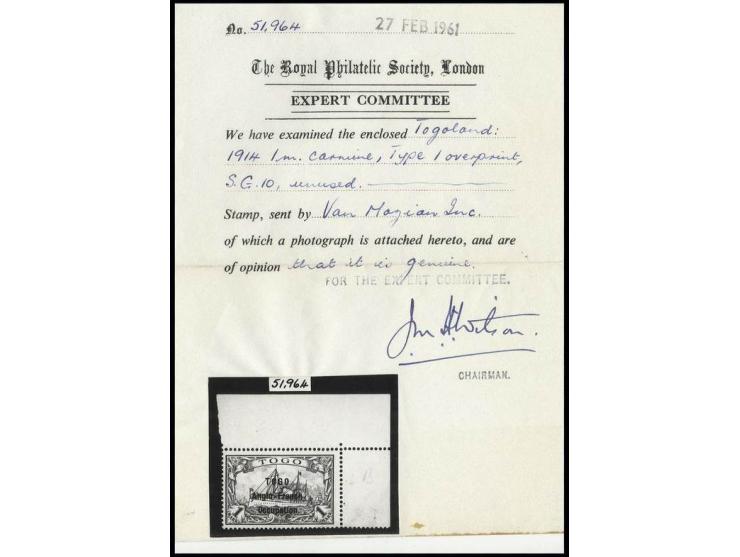 No. 51,964 27 FEB 1961
The Royal Philatelic Society, London
EXPERT COMMITTEE
We have examined the enclosed Togoland:
1914 1m. carmine, Type 1 overprint,
S.G. 10, unused.
Stamp, sent by Van Mozian Inc.
of which a photograph is attached hereto, and are
of opinion that it is genuine.
FOR THE EXPERT COMMITTEE.
Jn HWilson.
CHAIRMAN.
51,964
TOGO
TOGO
Anglo-French
Occupation.
1 1